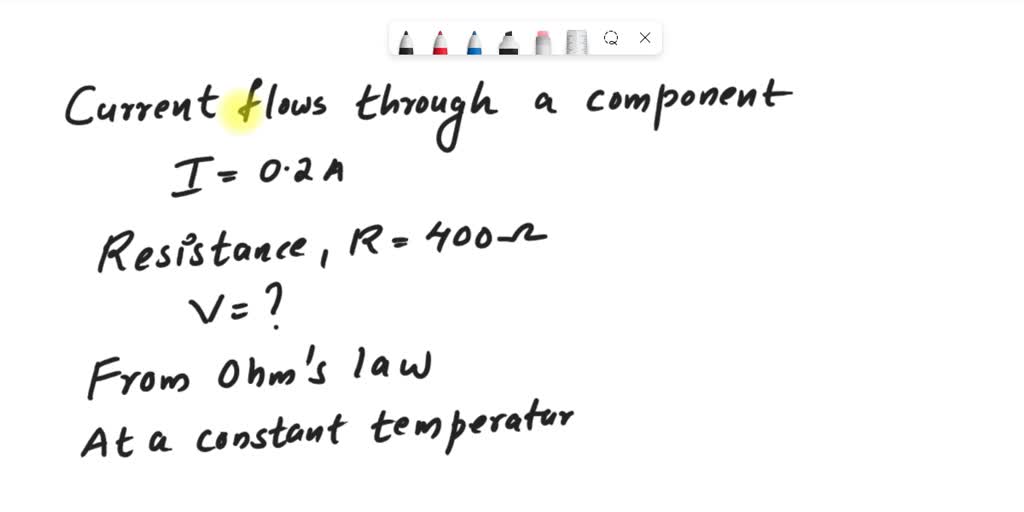 Current flows through a component
I = 0.2 A
Resistance, R = 400 Ω
V = ?
From Ohm's law
At a constant temperatur